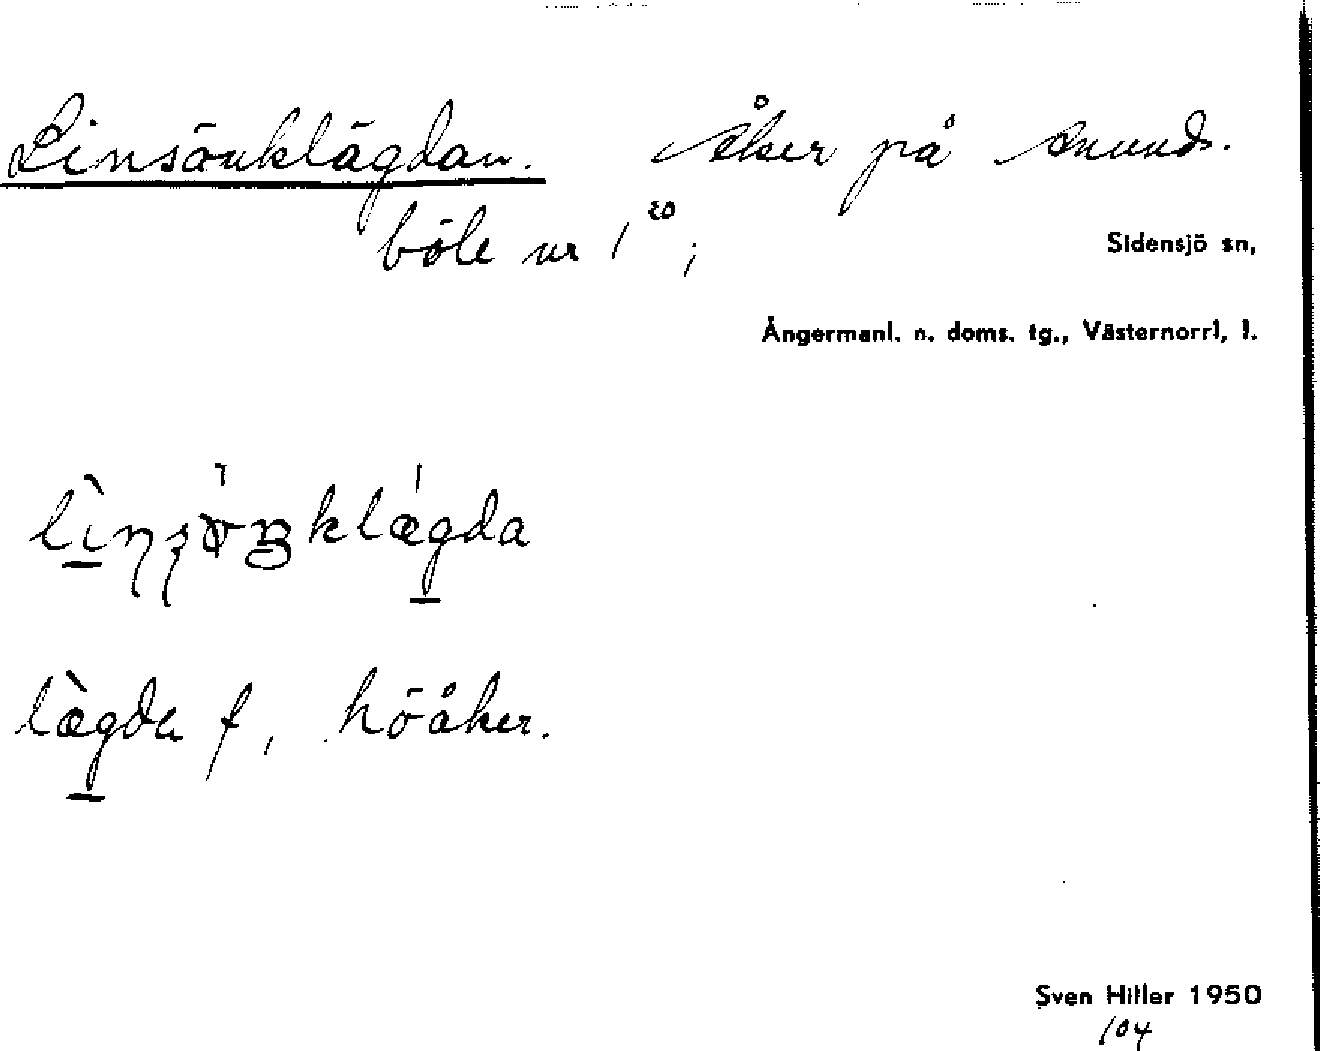 Linsänklägdan. Åker på Anund-
böle nr 1²⁰;
Sidensjö sn,
Ångermanl. n. doms. tg., Västernorrl, l.
lægda f, höåker.
Sven Hitler 1950
104